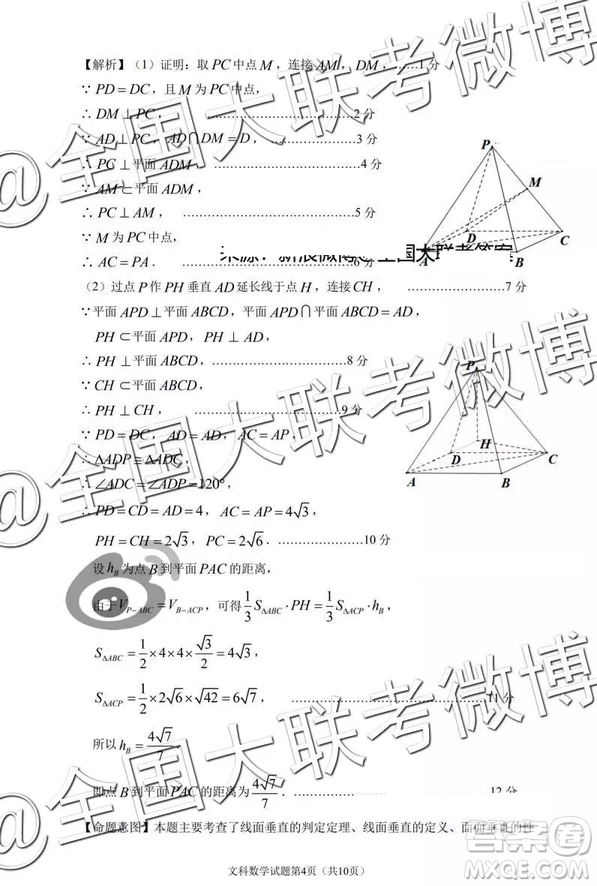 【解析】（1）证明：取 PC 中点 M，连接 AM，DM，……1分
∵ PD = DC，且 M 为 PC 中点，
∴ DM ⊥ PC，……………………2分
∵ AD ⊥ PC，AD ⋂ DM = D，……………3分
∴ PC ⊥ 平面 ADM，……………………4分
∵ AM ⊂ 平面 ADM，
∴ PC ⊥ AM，……………………5分
∵ M 为 PC 中点，
∴ AC = PA．……………………6分
（2）过点 P 作 PH 垂直 AD 延长线于点 H，连接 CH，……………7分
∵ 平面 APD ⊥ 平面 ABCD，平面 APD ⋂ 平面 ABCD = AD，
PH ⊂ 平面 APD，PH ⊥ AD，
∴ PH ⊥ 平面 ABCD，……………………8分
∵ CH ⊂ 平面 ABCD，
∴ PH ⊥ CH，……………………9分
∵ PD = DC，AD = AD，AC = AP，
∴ ΔADP ≅ ΔADC，
∴ ∠ADC = ∠ADP = 120°，
∴ PD = CD = AD = 4，AC = AP = 4√3，
PH = CH = 2√3，PC = 2√6．……………10分
设 h_B 为点 B 到平面 PAC 的距离，
由于 V_{P-ABC} = V_{B-ACP}，可得 1/3 S_{ΔABC} · PH = 1/3 S_{ΔACP} · h_B，
S_{ΔABC} = 1/2 × 4 × 4 × √3/2 = 4√3，
S_{ΔACP} = 1/2 × 2√6 × √42 = 6√7，……………………11分
所以 h_B = 4√7/7
即点 B 到平面 PAC 的距离为 4√7/7．……………………12分
【命题意图】本题主要考查了线面垂直的判定定理、线面垂直的定义、面面垂直的性
文科数学试题第4页（共10页）
P
M
D
C
A
B
P
H
D
C
A
B
@全国大联考微博
@全国大联考微博
@全国大联考微博
答案圈
MXQE.COM